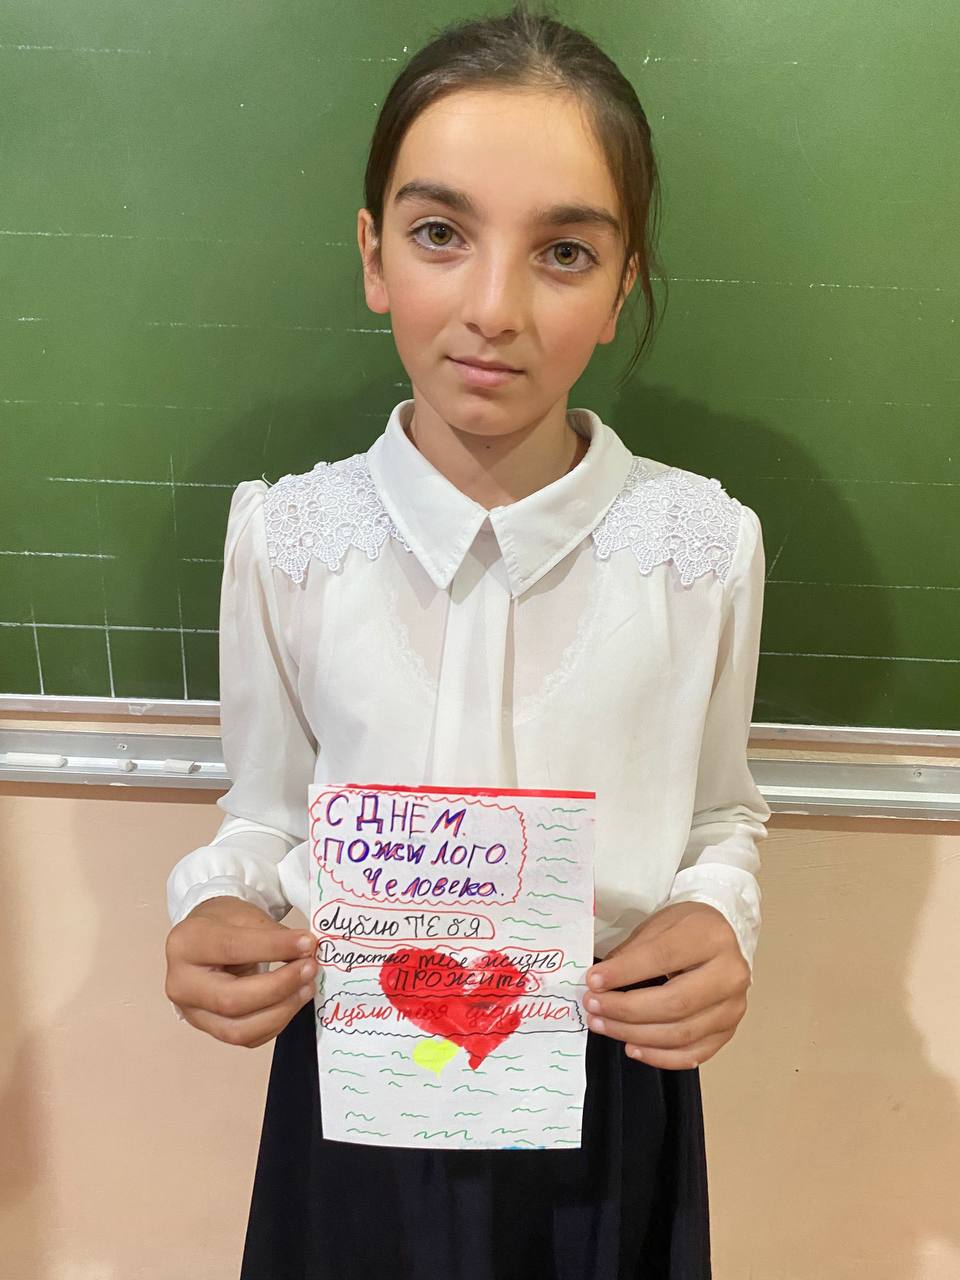 С ДНЕМ.
ПОЖИЛОГО.
Человека.
Лублю ТЕбЯ
Радостно тебе жизнь
ПРОЖИТЬ.
Лублю тебя дедушка.